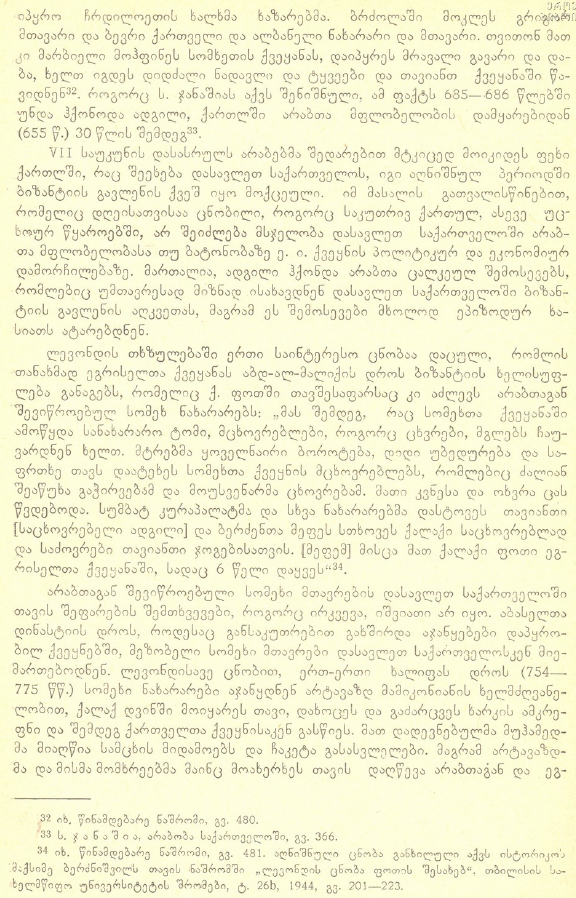 იპყრო ჩრდილოეთის ხალხმა ხაზარებმა. ბრძოლაში მოკლეს გრიგორ
მთავარი და ბევრი ქართველი და ალბანელი ნახარარი და მთავარი. თვითონ მათ
კი მარბიელი მოჰფინეს სომხეთის ქვეყანას, დაიპყრეს მრავალი გავარი და და-
ბა, ხელთ იგდეს დიდძალი ნადავლი და ტყვეები და თავიანთ ქვეყანაში წა-
ვიდნენ³². როგორც ს. ჯანაშიას აქვს შენიშნული, ამ ფაქტს 685—686 წლებში
უნდა ჰქონოდა ადგილი, ქართლში არაბთა მფლობელობის დამყარებიდან
(655 წ.) 30 წლის შემდეგ³³.
VII საუკუნის დასასრულს არაბებმა შედარებით მტკიცედ მოიკიდეს ფეხი
ქართლში, რაც შეეხება დასავლეთ საქართველოს, იგი აღნიშნულ პერიოდში
ბიზანტიის გავლენის ქვეშ იყო მოქცეული. იმ მასალის გათვალისწინებით,
რომელიც დღეისათვისაა ცნობილი, როგორც საკუთრივ ქართულ, ასევე უც-
ხოურ წყაროებში, არ შეიძლება მსჯელობა დასავლეთ საქართველოში არაბ-
თა მფლობელობასა თუ ბატონობაზე ე. ი. ქვეყნის პოლიტიკურ და ეკონომიურ
დამორჩილებაზე. მართალია, ადგილი ჰქონდა არაბთა ცალკეულ შემოსევებს,
რომლებიც უმთავრესად მიზნად ისახავდნენ დასავლეთ საქართველოში ბიზან-
ტიის გავლენის აღკვეთას, მაგრამ ეს შემოსევები მხოლოდ ეპიზოდურ ხა-
სიათს ატარებდნენ.
ლევონდის თხზულებაში ერთი საინტერესო ცნობაა დაცული, რომლის
თანახმად ეგრისელთა ქვეყანას აბდ-ალ-მალიქის დროს ბიზანტიის ხელისუფ-
ლება განაგებს, რომელიც ქ. ფოთში თავშესაფარსაც კი აძლევს არაბთაგან
შევიწროებულ სომეხ ნახარარებს: „მას შემდეგ, რაც სომეხთა ქვეყანაში
ამოწყდა სანახარარო ტომი, მცხოვრებლები, როგორც ცხვრები, მგლებს ჩაუ-
ვარდნენ ხელთ. მტრებმა ყოველნაირი ბოროტება, დიდი უბედურება და სა-
ფრთხე თავს დაატეხეს სომეხთა ქვეყნის მცხოვრებლებს, რომლებიც ძალიან
შეაწუხა გაჭირვებამ და მოუსვენარმა ცხოვრებამ. მათი კვნესა და ოხვრა ცას
წვდებოდა. სუმბატ კურაპალატმა და სხვა ნახარარებმა დასტოვეს თავიანთი
[საცხოვრებელი ადგილი] და ბერძენთა მეფეს სთხოვეს ქალაქი საცხოვრებლად
და საძოვრები თავიანთი ჯოგებისათვის. [მეფემ] მისცა მათ ქალაქი ფოთი ეგ-
რისელთა ქვეყანაში, სადაც 6 წელი დაყვეს“³⁴.
არაბთაგან შევიწროებული სომეხი მთავრების დასავლეთ საქართველოში
თავის შეფარების შემთხვევები, როგორც ირკვევა, იშვიათი არ იყო. აბასელთა
დინასტიის დროს, როდესაც განსაკუთრებით გახშირდა აჯანყებები დაპყრო-
ბილ ქვეყნებში, მეზობელი სომეხი მთავრები დასავლეთ საქართველოსკენ მიე-
მართებოდნენ. ლევონდისავე ცნობით, ერთ-ერთი ხალიფას დროს (754—
775 წწ.) სომეხი ნახარარები აჯანყდნენ არტავაზდ მამიკონიანის ხელმძღვანე-
ლობით, ქალაქ დვინში მოიყარეს თავი, დახოცეს და გაძარცვეს ხარკის ამკრე-
ფნი და შემდეგ ქართველთა ქვეყნისაკენ გასწიეს. მათ დადევნებულმა მუჰამედ-
მა მიაღწია სამცხის მიდამოებს და ჩაკეტა გასასვლელები. მაგრამ არტავაზდ-
მა და მისმა მომხრეებმა მაინც მოახერხეს თავის დაღწევა არაბთაგან და ეგ-
³² იხ. წინამდებარე ნაშრომი, გვ. 480.
³³ ს. ჯანაშია, არაბობა საქართველოში, გვ. 366.
³⁴ იხ. წინამდებარე ნაშრომი, გვ. 481. აღნიშნული ცნობა განხილული აქვს ისტორიკოს
მაქსიმე ბერძნიშვილს თავის ნაშრომში „ლევონდის ცნობა ფოთის შესახებ“, თბილისის სა-
ხელმწიფო უნივერსიტეტის შრომები, ტ. 26b, 1944, გვ. 201—223.